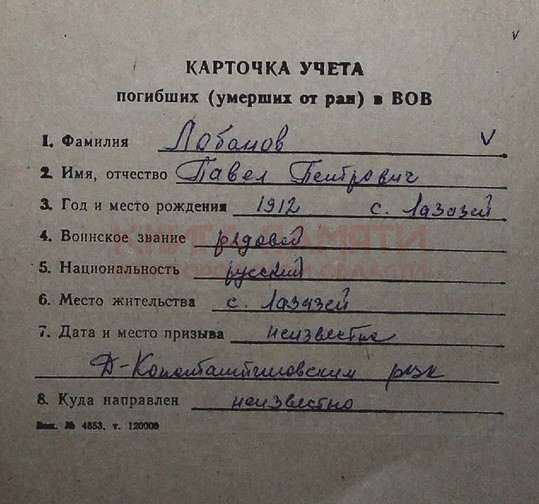 КАРТОЧКА УЧЕТА
погибших (умерших от ран) в ВОВ
1. Фамилия Лобанов
2. Имя, отчество Павел Петрович
3. Год и место рождения 1912 с. Лазазей
4. Воинское звание рядовой
КНИГА ПАМЯТИ
5. Национальность русский
ОБЛАСТИ
6. Место жительства с. Лазазей
7. Дата и место призыва неизвестно
Д-Константиновским рвк
8. Куда направлен неизвестно
Зак. № 4853, т. 120000